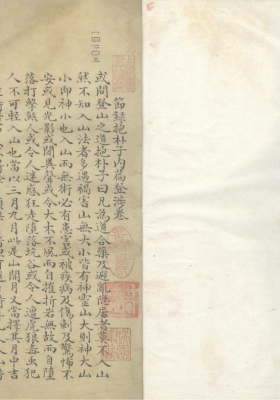 一四二〇三
節録抱朴子内篇登涉卷
或問登山之道抱朴子曰凡為道合藥及避亂隱居者莫不入山
然不知入山法者多遇禍害山無大小皆有神靈山大則神大山
小即神小也入山而無術必有患害或被疾病及傷刺及驚怖不
安或見光影或聞異聲或令大木不風而自摧折岩無故而自墮
落打擊煞人或令人迷惑狂走墮落坑谷或令人遭虎狼毒虫犯
人不可輕入山也當以三月九月此是山開月又當擇其月中吉